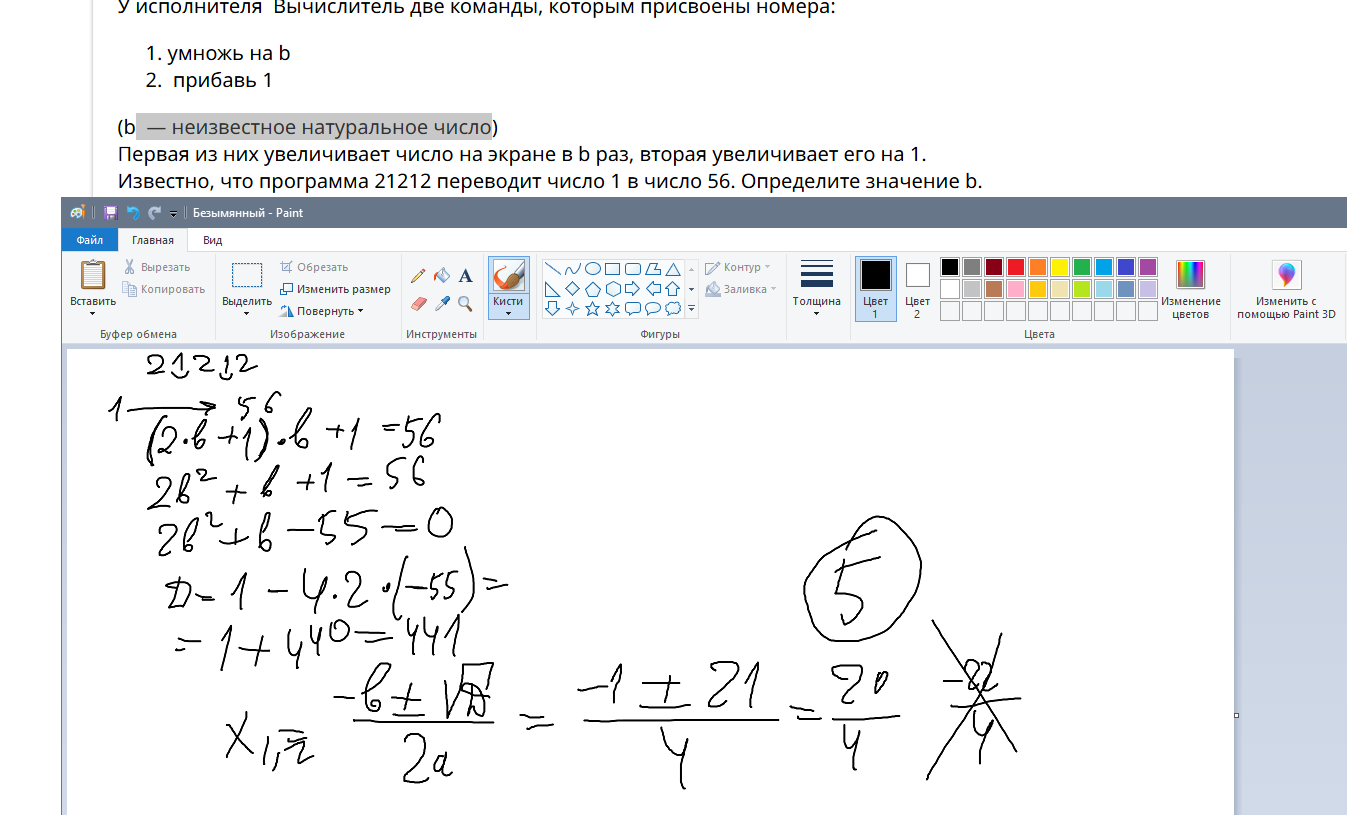 У исполнителя Вычислитель две команды, которым присвоены номера:
1. умножь на b
2. прибавь 1
(b — неизвестное натуральное число)
Первая из них увеличивает число на экране в b раз, вторая увеличивает его на 1.
Известно, что программа 21212 переводит число 1 в число 56. Определите значение b.
Безымянный - Paint
Файл Главная Вид
Вставить
Вырезать
Копировать
Буфер обмена
Выделить
Обрезать
Изменить размер
Повернуть
Изображение
A
Инструменты
Кисти
Контур
Заливка
Фигуры
Толщина
Цвет 1
Цвет 2
Изменение цветов
Цвета
Изменить с помощью Paint 3D
21212
1 → 56
(2·b+1)·b+1=56
2b²+b+1=56
2b²+b-55=0
D=1-4·2·(-55)=
=1+440=441
5
x1,2= -b±√D / 2a = -1±21 / 4 = 20 / 4 -22 / 4